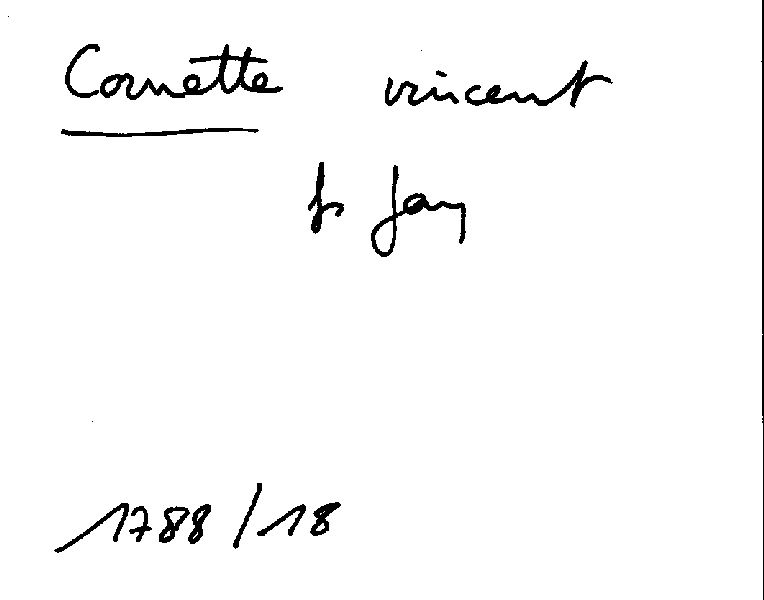 Cornette vincent
fs Jay
1788/18